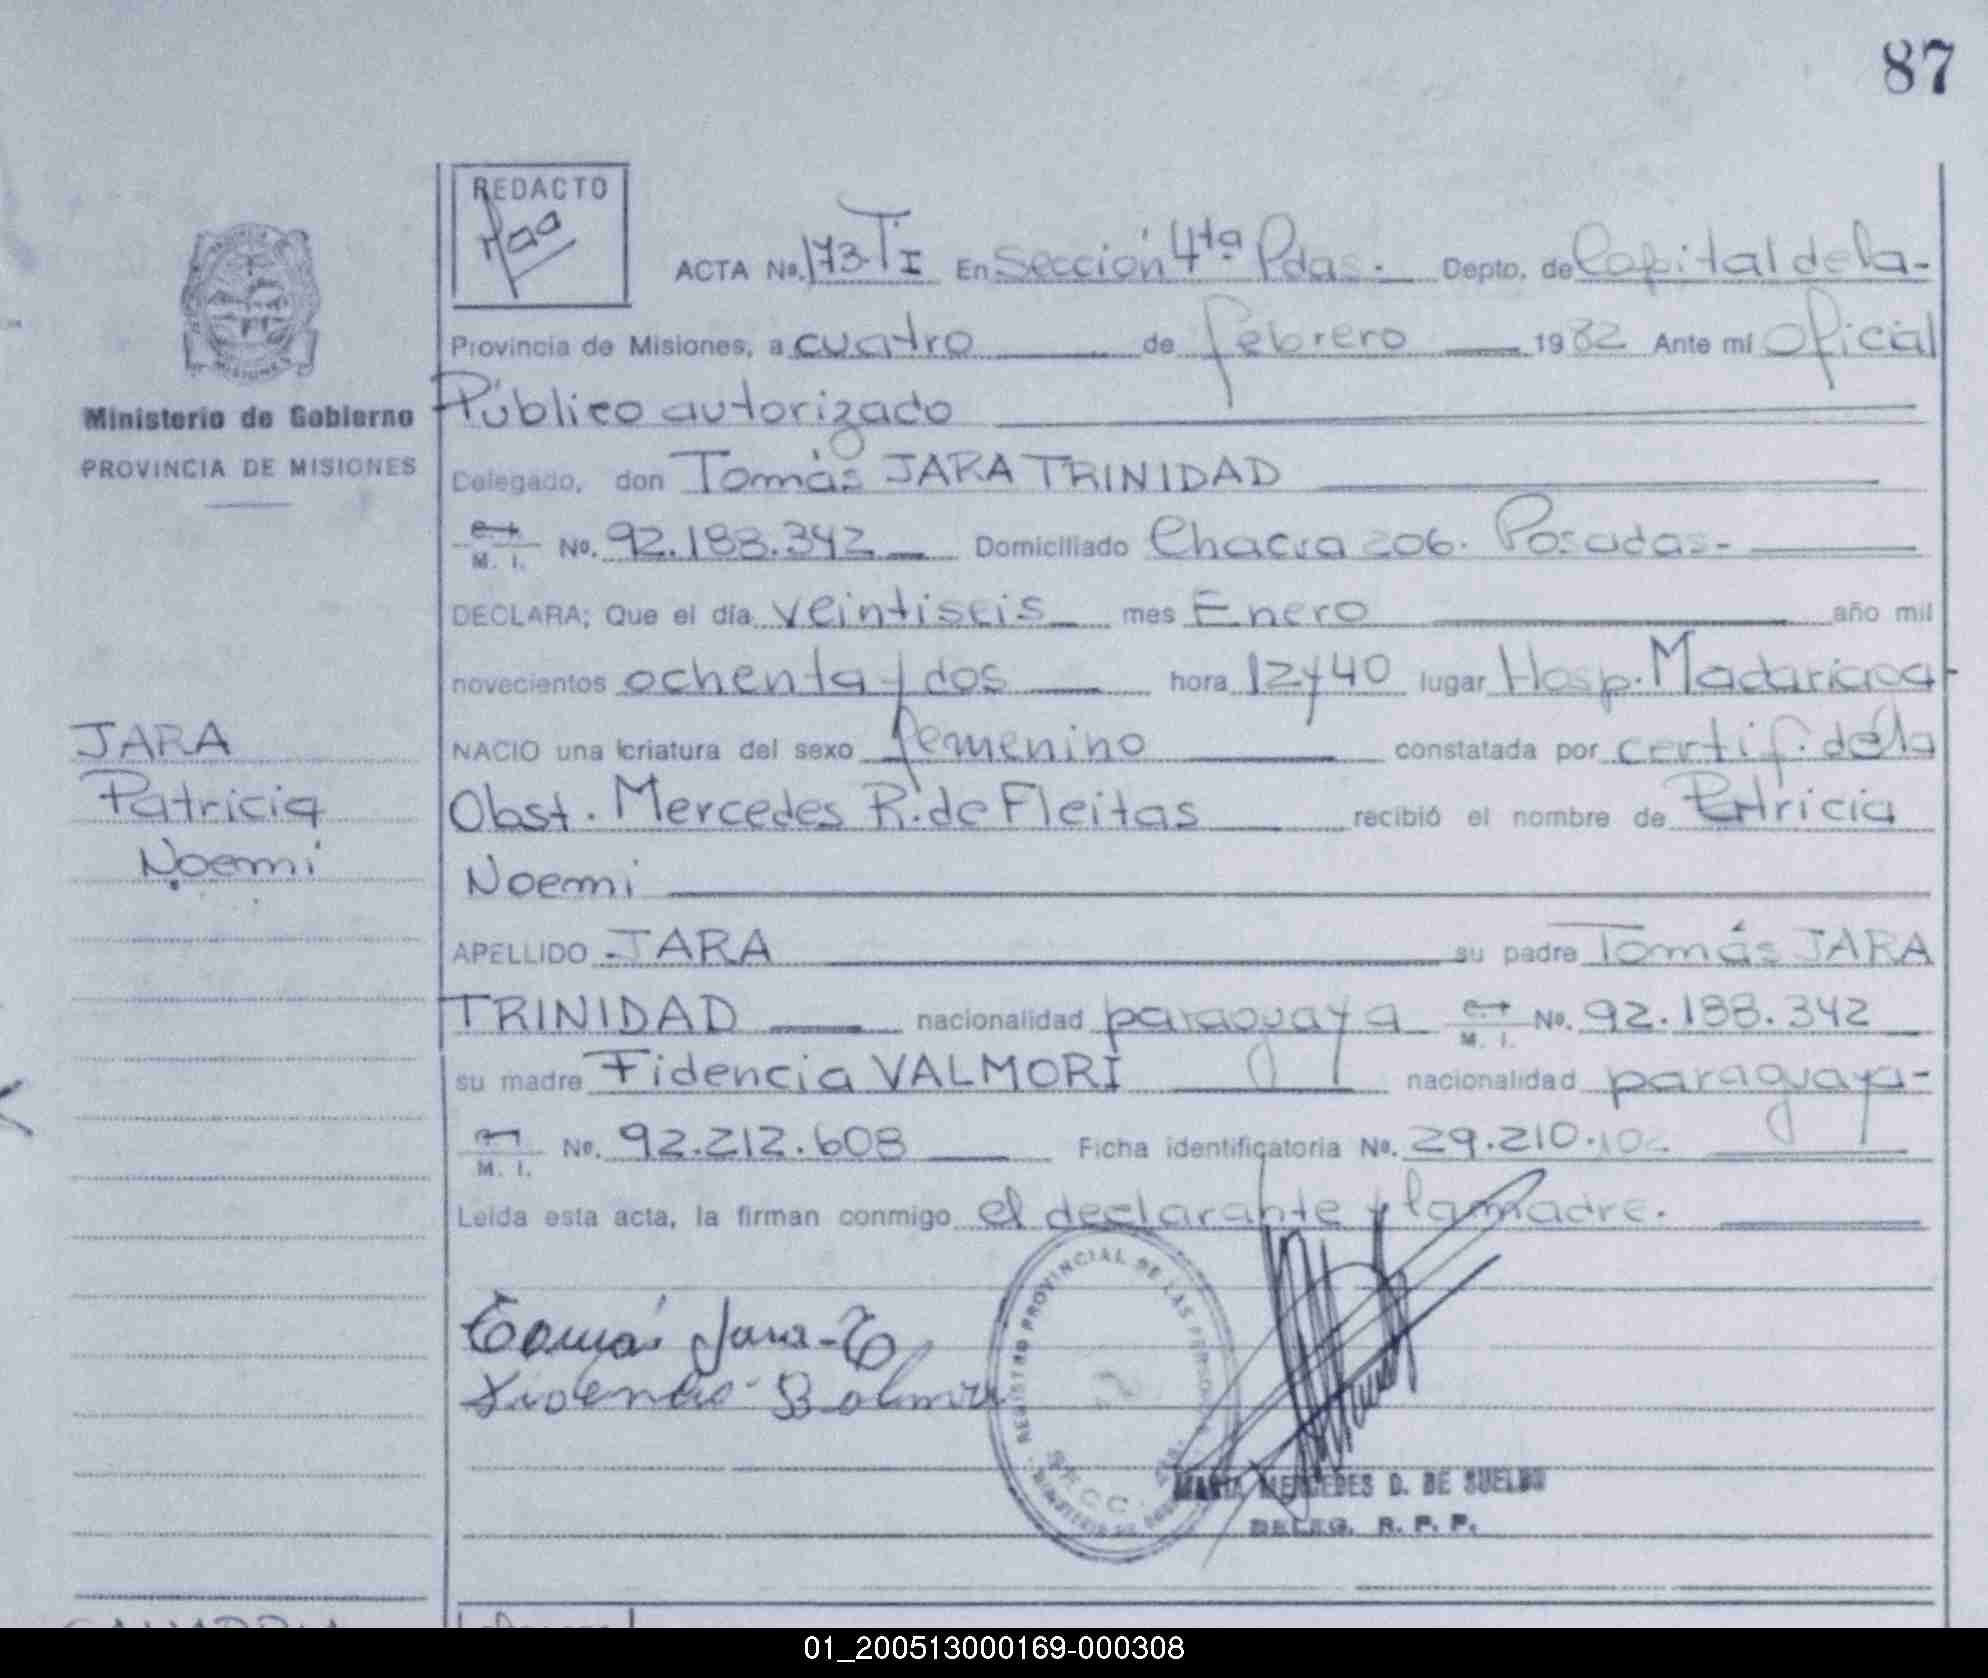 87
REDACTO
ACTA No. 173 T I En Sección 4ta Pdas. Depto. de Capital de la-
Provincia de Misiones, a cuatro de febrero 1982 Ante mí Oficial
Público autorizado
Ministerio de Gobierno
PROVINCIA DE MISIONES
Delegado, don Tomás JARA TRINIDAD
M. I. No. 92.188.342 Domiciliado Chacra 206. Posadas-
DECLARA; Que el día veintiseis mes Enero año mil
novecientos ochenta y dos hora 12y40 lugar Hosp. Madariaga-
JARA
Patricia
Noemi
NACIO una criatura del sexo femenino constatada por certif. de la
Obst. Mercedes R. de Fleitas recibió el nombre de Patricia
Noemi
APELLIDO JARA su padre Tomás JARA
TRINIDAD nacionalidad paraguaya M. I. No. 92.188.342
su madre Fidencia VALMORI nacionalidad paraguaya-
M. I. No. 92.212.608 Ficha identificatoria No. 29.210.102
Leída esta acta, la firman conmigo el declarante y la madre.
Tomás Jara-T
REGISTRO PROVINCIAL DE LAS PERSONAS
MARIA MERCEDES D. DE SUELDO
DELEG. R. P. P.
01_200513000169-000308